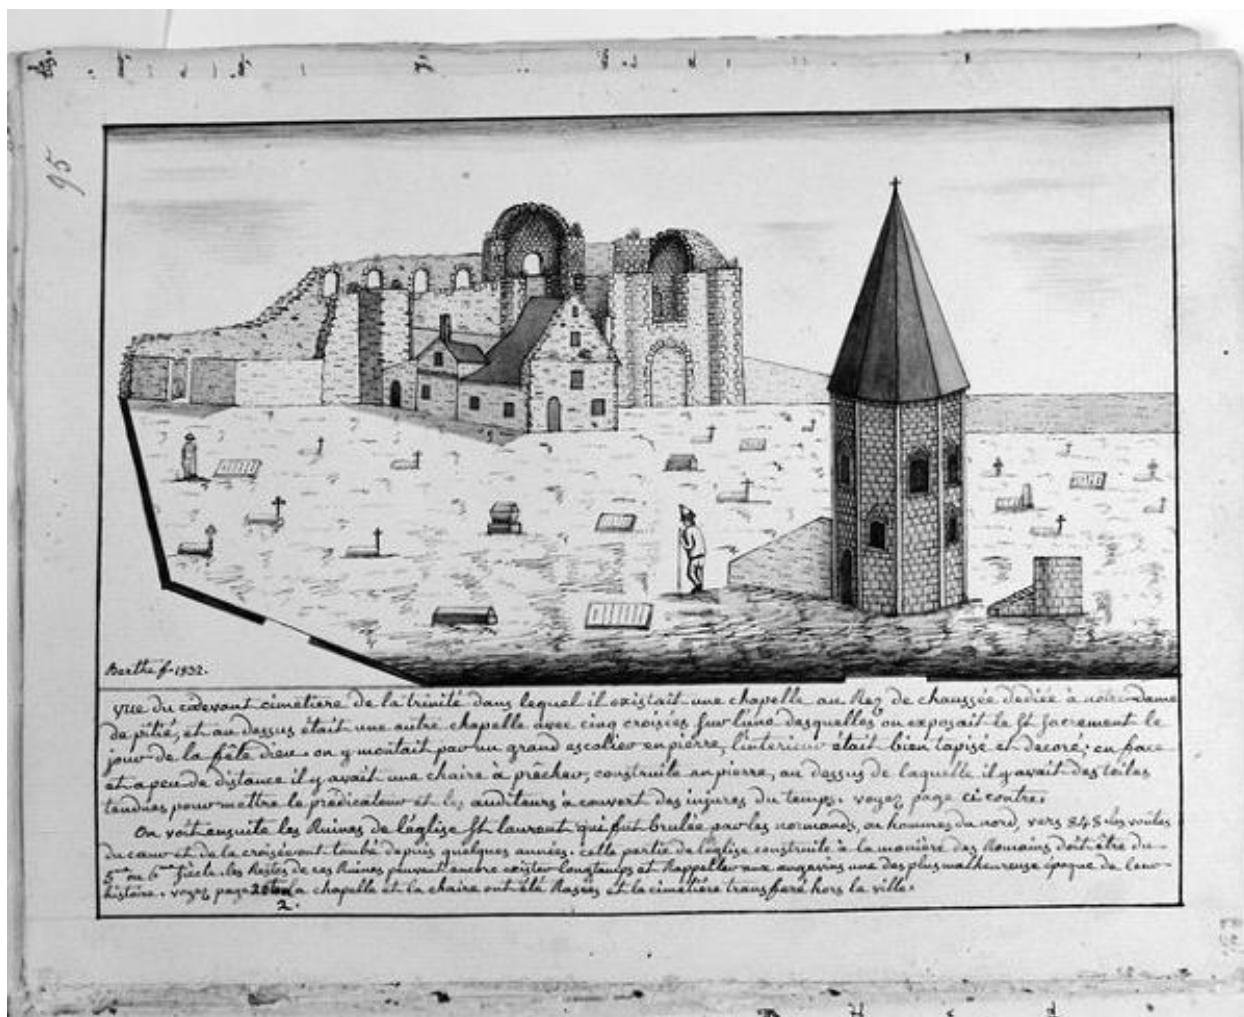 95
Berthe f. 1832.
vue du cidevant cimetiere de la trinité dans lequel il existait une chapelle au Rez de chaussée dediée à notre dame
de pitié, et au dessus était une autre chapelle avec cinq croisées sur l'une desquelles on exposait le St Sacrement le
jour de la fête dieu. on y montait par un grand escalier en pierre, l'interieur était bien tapisé et decoré; en face
et a peu de distance il y avait une chaire à prêcher, construite en pierre, au dessus de laquelle il y avait des toiles
tendues pour mettre le prédicateur et les auditeurs à couvert des injures du temps. voyez page ci contre.
On voit ensuite les Ruines de l'église St laurent qui fut brulée par les normands, ou hommes du nord, vers 848. les voûtes
du cœur et de la croisée ont tombé depuis quelques années. cette partie de l'église construite à la manière des Romains doit être du
5me ou 6me Siècle. les Restes de ces Ruines peuvent encore exister longtemps et Rappeller aux angevins une des plus malheureuse époque de leur
histoire. voyez page la chapelle et la chaire ont été Rasées et le cimetière transferé hors la ville.
2.